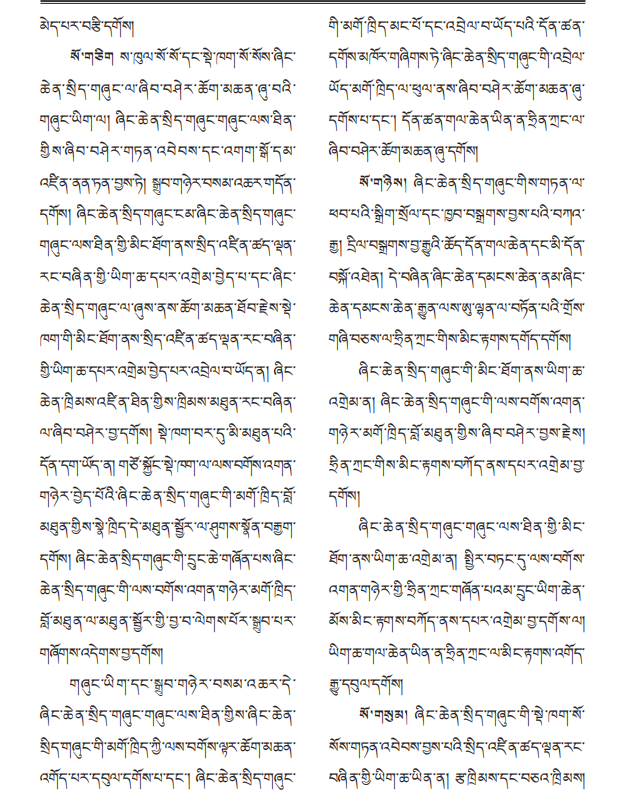 མེད་པར་བརྩི་དགོས།
སོ་གཅིག ས་ཁུལ་སོ་སོ་དང་སྡེ་ཁག་སོ་སོས་ཞིང་
ཆེན་སྲིད་གཞུང་ལ་ཞིབ་བཤེར་ཆོག་མཆན་ཞུ་བའི་
གཞུང་ཡིག་ལ། ཞིང་ཆེན་སྲིད་གཞུང་གཞུང་ལས་ཐིན་
གྱིས་ཞིབ་བཤེར་གཏན་འབེབས་དང་འགག་སྒོ་དམ་
འཛིན་ནན་ཏན་བྱས་ཏེ། སྒྲུབ་གཉེར་བསམ་འཆར་གདོན་
དགོས། ཞིང་ཆེན་སྲིད་གཞུང་ངམ་ཞིང་ཆེན་སྲིད་གཞུང་
གཞུང་ལས་ཐིན་གྱི་མིང་ཐོག་ནས་སྲིད་འཛིན་ཚད་ལྡན་
རང་བཞིན་གྱི་ཡིག་ཆ་དཔར་འགྲེམ་བྱེད་པ་དང་ཞིང་
ཆེན་སྲིད་གཞུང་ལ་ཞུས་ནས་ཆོག་མཆན་ཐོབ་རྗེས་སྡེ་
ཁག་གི་མིང་ཐོག་ནས་སྲིད་འཛིན་ཚད་ལྡན་རང་བཞིན་
གྱི་ཡིག་ཆ་དཔར་འགྲེམ་བྱེད་པར་འབྲེལ་བ་ཡོད་ན། ཞིང་
ཆེན་ཁྲིམས་འཛིན་ཐིན་གྱིས་ཁྲིམས་མཐུན་རང་བཞིན་
ལ་ཞིབ་བཤེར་བྱ་དགོས། སྡེ་ཁག་བར་དུ་མི་མཐུན་པའི་
དོན་དག་ཡོད་ན། གཙོ་སྐྱོང་སྡེ་ཁག་ལ་ལས་བགོས་འགན་
གཉེར་བྱེད་པོའི་ཞིང་ཆེན་སྲིད་གཞུང་གི་མགོ་ཁྲིད་བློ་
མཐུན་གྱིས་སྣེ་ཁྲིད་དེ་མཐུན་སྦྱོར་ལ་ཤུགས་སྣོན་བརྒྱག་
དགོས། ཞིང་ཆེན་སྲིད་གཞུང་གི་དྲུང་ཆེ་གཞོན་པས་ཞིང་
ཆེན་སྲིད་གཞུང་གི་ལས་བགོས་འགན་གཉེར་མགོ་ཁྲིད་
བློ་མཐུན་ལ་མཐུན་སྦྱོར་གྱི་བྱ་བ་ལེགས་པོར་སྒྲུབ་པར་
གཞོགས་འདེགས་བྱ་དགོས།
གཞུང་ཡིག་དང་སྒྲུབ་གཉེར་བསམ་འཆར་དེ་
ཞིང་ཆེན་སྲིད་གཞུང་གཞུང་ལས་ཐིན་གྱིས་ཞིང་ཆེན་
སྲིད་གཞུང་གི་མགོ་ཁྲིད་ཀྱི་ལས་བགོས་ལྟར་ཆོག་མཆན་
འགོད་པར་དབུལ་དགོས་པ་དང་། ཞིང་ཆེན་སྲིད་གཞུང་
གི་མགོ་ཁྲིད་མང་པོ་དང་འབྲེལ་བ་ཡོད་པའི་དོན་ཚན་
དགོས་མཁོར་གཞིགས་ཏེ་ཞིང་ཆེན་སྲིད་གཞུང་གི་འབྲེལ་
ཡོད་མགོ་ཁྲིད་ལ་ཕུལ་ནས་ཞིབ་བཤེར་ཆོག་མཆན་ཞུ་
དགོས་པ་དང་། དོན་ཚན་གལ་ཆེན་ཡིན་ན་ཧྲིན་ཀྲང་ལ་
ཞིབ་བཤེར་ཆོག་མཆན་ཞུ་དགོས།
སོ་གཉིས། ཞིང་ཆེན་སྲིད་གཞུང་གིས་གཏན་ལ་
ཕབ་པའི་སྒྲིག་སྲོལ་དང་ཁྱབ་བསྒྲགས་བྱས་པའི་བཀའ་
རྒྱ། དྲིལ་བསྒྲགས་བྱ་རྒྱུའི་ཆོད་དོན་གལ་ཆེན་དང་མི་དོན་
བསྐོ་འཐེན། དེ་བཞིན་ཞིང་ཆེན་དམངས་ཆེན་ནམ་ཞིང་
ཆེན་དམངས་ཆེན་རྒྱུན་ལས་ཨུ་ལྷན་ལ་བཏོན་པའི་གྲོས་
གཞི་བཅས་ལ་ཧྲིན་ཀྲང་གིས་མིང་རྟགས་དགོད་དགོས།
ཞིང་ཆེན་སྲིད་གཞུང་གི་མིང་ཐོག་ནས་ཡིག་ཆ་
འགྲེམ་ན། ཞིང་ཆེན་སྲིད་གཞུང་གི་ལས་བགོས་འགན་
གཉེར་མགོ་ཁྲིད་བློ་མཐུན་གྱིས་ཞིབ་བཤེར་བྱས་རྗེས།
ཧྲིན་ཀྲང་གིས་མིང་རྟགས་བཀོད་ནས་དཔར་འགྲེམ་བྱ་
དགོས།
ཞིང་ཆེན་སྲིད་གཞུང་གཞུང་ལས་ཐིན་གྱི་མིང་
ཐོག་ནས་ཡིག་ཆ་འགྲེམ་ན། སྤྱིར་བཏང་དུ་ལས་བགོས་
འགན་གཉེར་གྱི་ཧྲིན་ཀྲང་གཞོན་པའམ་དྲུང་ཡིག་ཆེན་
མོས་མིང་རྟགས་བཀོད་ནས་དཔར་འགྲེམ་བྱ་དགོས་ལ།
ཡིག་ཆ་གལ་ཆེན་ཡིན་ན་ཧྲིན་ཀྲང་ལ་མིང་རྟགས་འགོད་
རྒྱུ་དབུལ་དགོས།
སོ་གསུམ། ཞིང་ཆེན་སྲིད་གཞུང་གི་སྡེ་ཁག་སོ་
སོས་གཏན་འབེབས་བྱས་པའི་སྲིད་འཛིན་ཚད་ལྡན་རང་
བཞིན་གྱི་ཡིག་ཆ་ཡིན་ན། རྩ་ཁྲིམས་དང་བཅའ་ཁྲིམས།